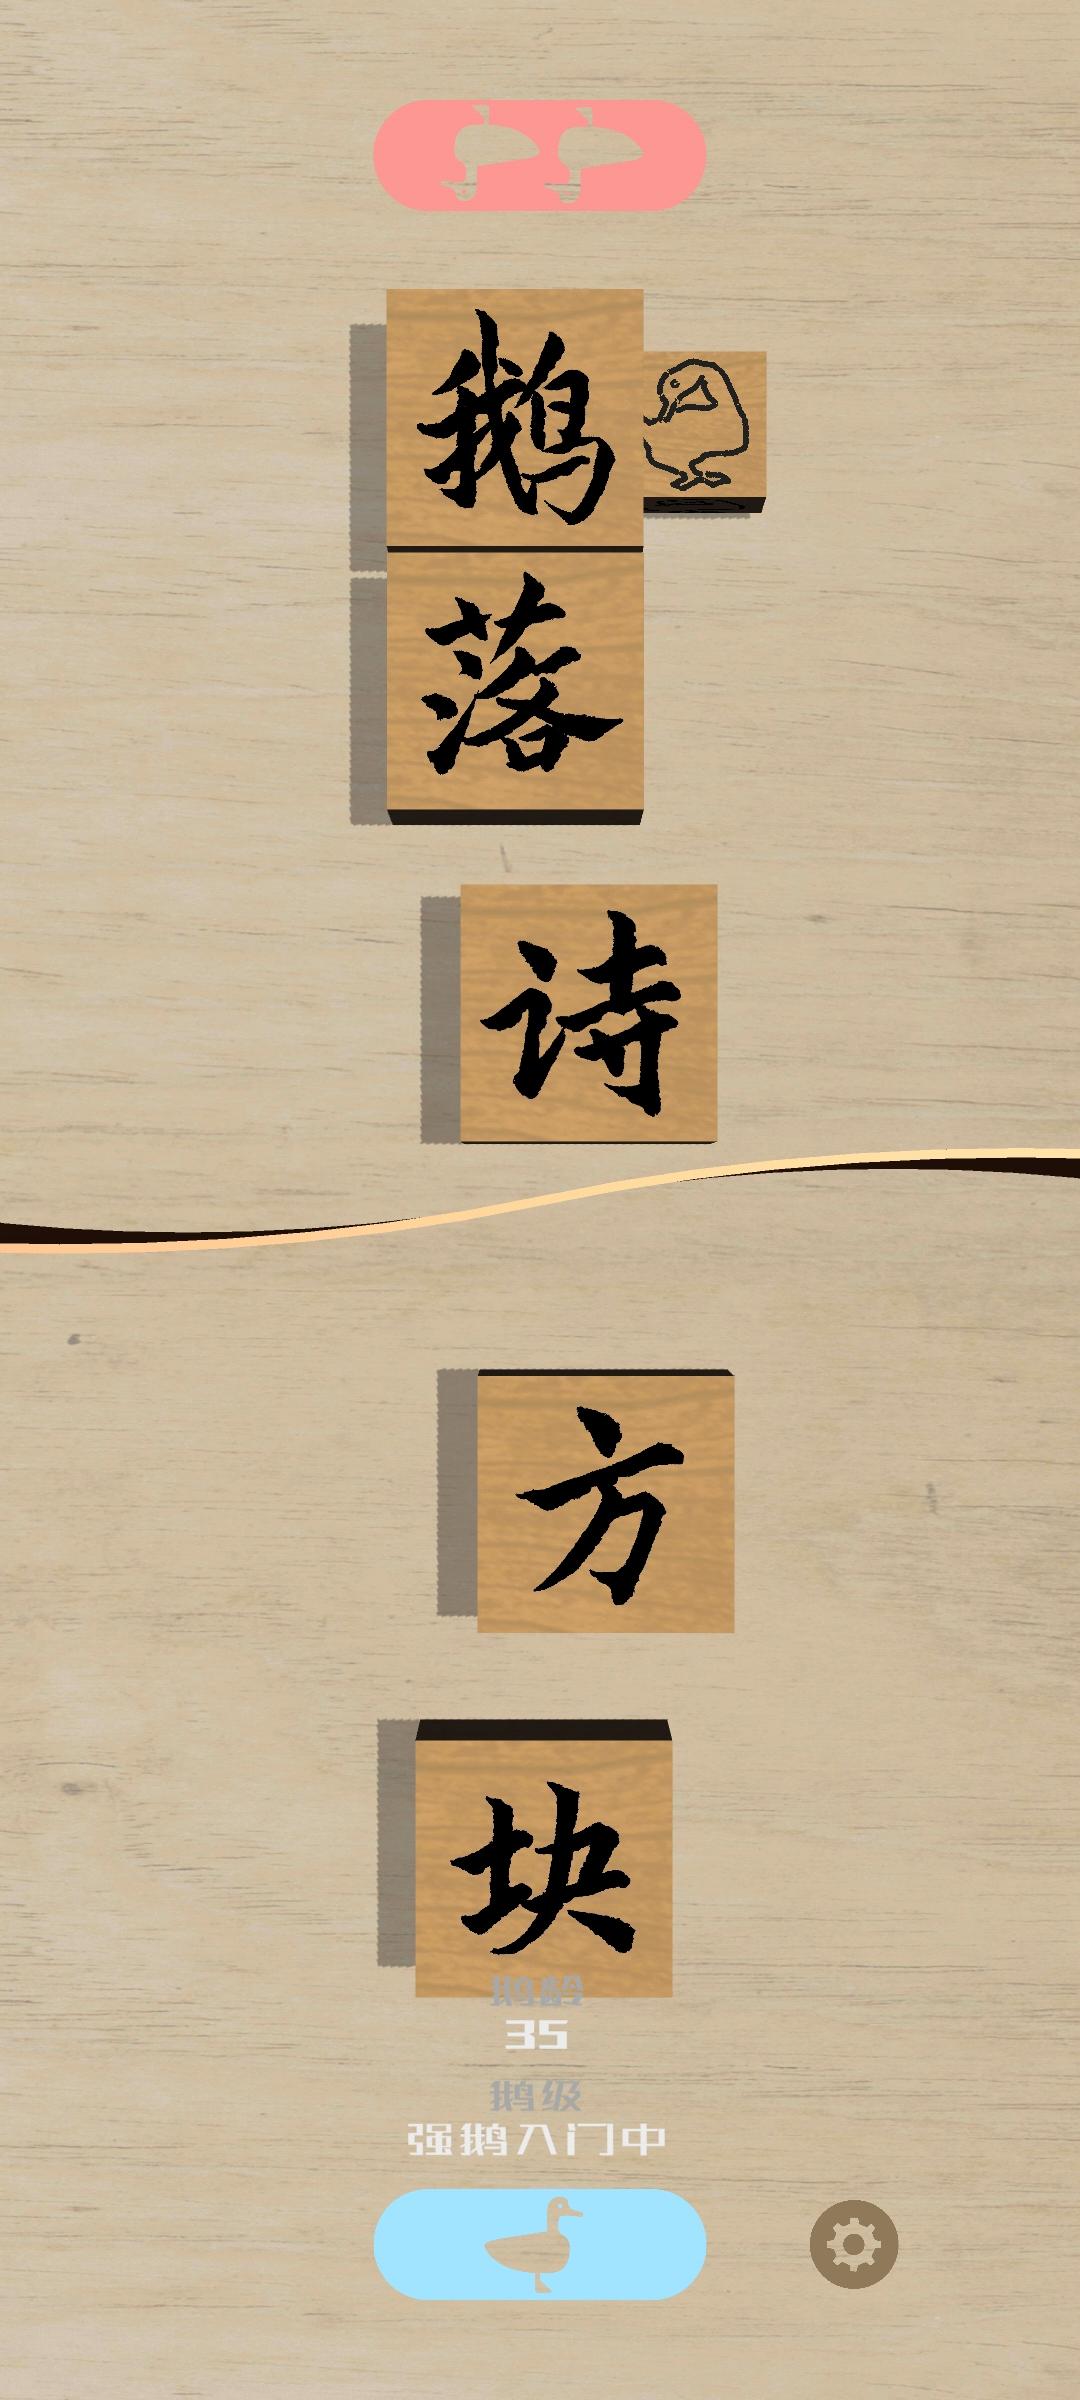 鹅
落
诗
方
块
鹅龄
35
鹅级
强鹅入门中